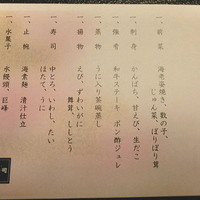 一、前菜　海老姿焼き、数の子、
じゅん菜、ぽりぽり茸
一、刺身　かんぱち、甘えび、生だこ
一、強肴　和牛ステーキ　ポン酢ジュレ
一、蒸物　うに入り茶碗蒸し
一、揚物　えび、ずわいがに
舞茸、ししとう
一、寿司　中とろ、いわし、たい
ほたて、うに
一、止椀　海素麺　清汁仕立
一、水菓子　水饅頭、巨峰
司